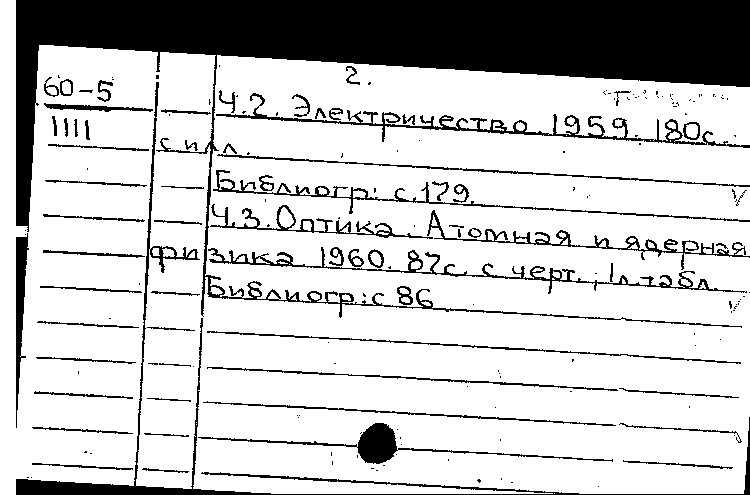 2.
60-5
Ч.2. Электричество. 1959. 180с.
1111
с илл.
Библиогр: с.179.
Ч.3. Оптика. Атомная и ядерная
физика 1960. 87с. с черт., 1л.табл.
Библиогр: с 86